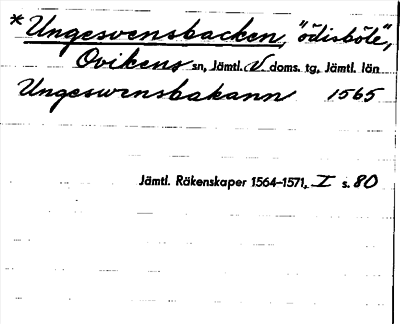 *Ungesvensbacken, "ödisböle",
Ovikens sn, Jämtl. V. doms. tg, Jämtl. län
Ungeswensbakann 1565
Jämtl. Räkenskaper 1564–1571, I s. 80